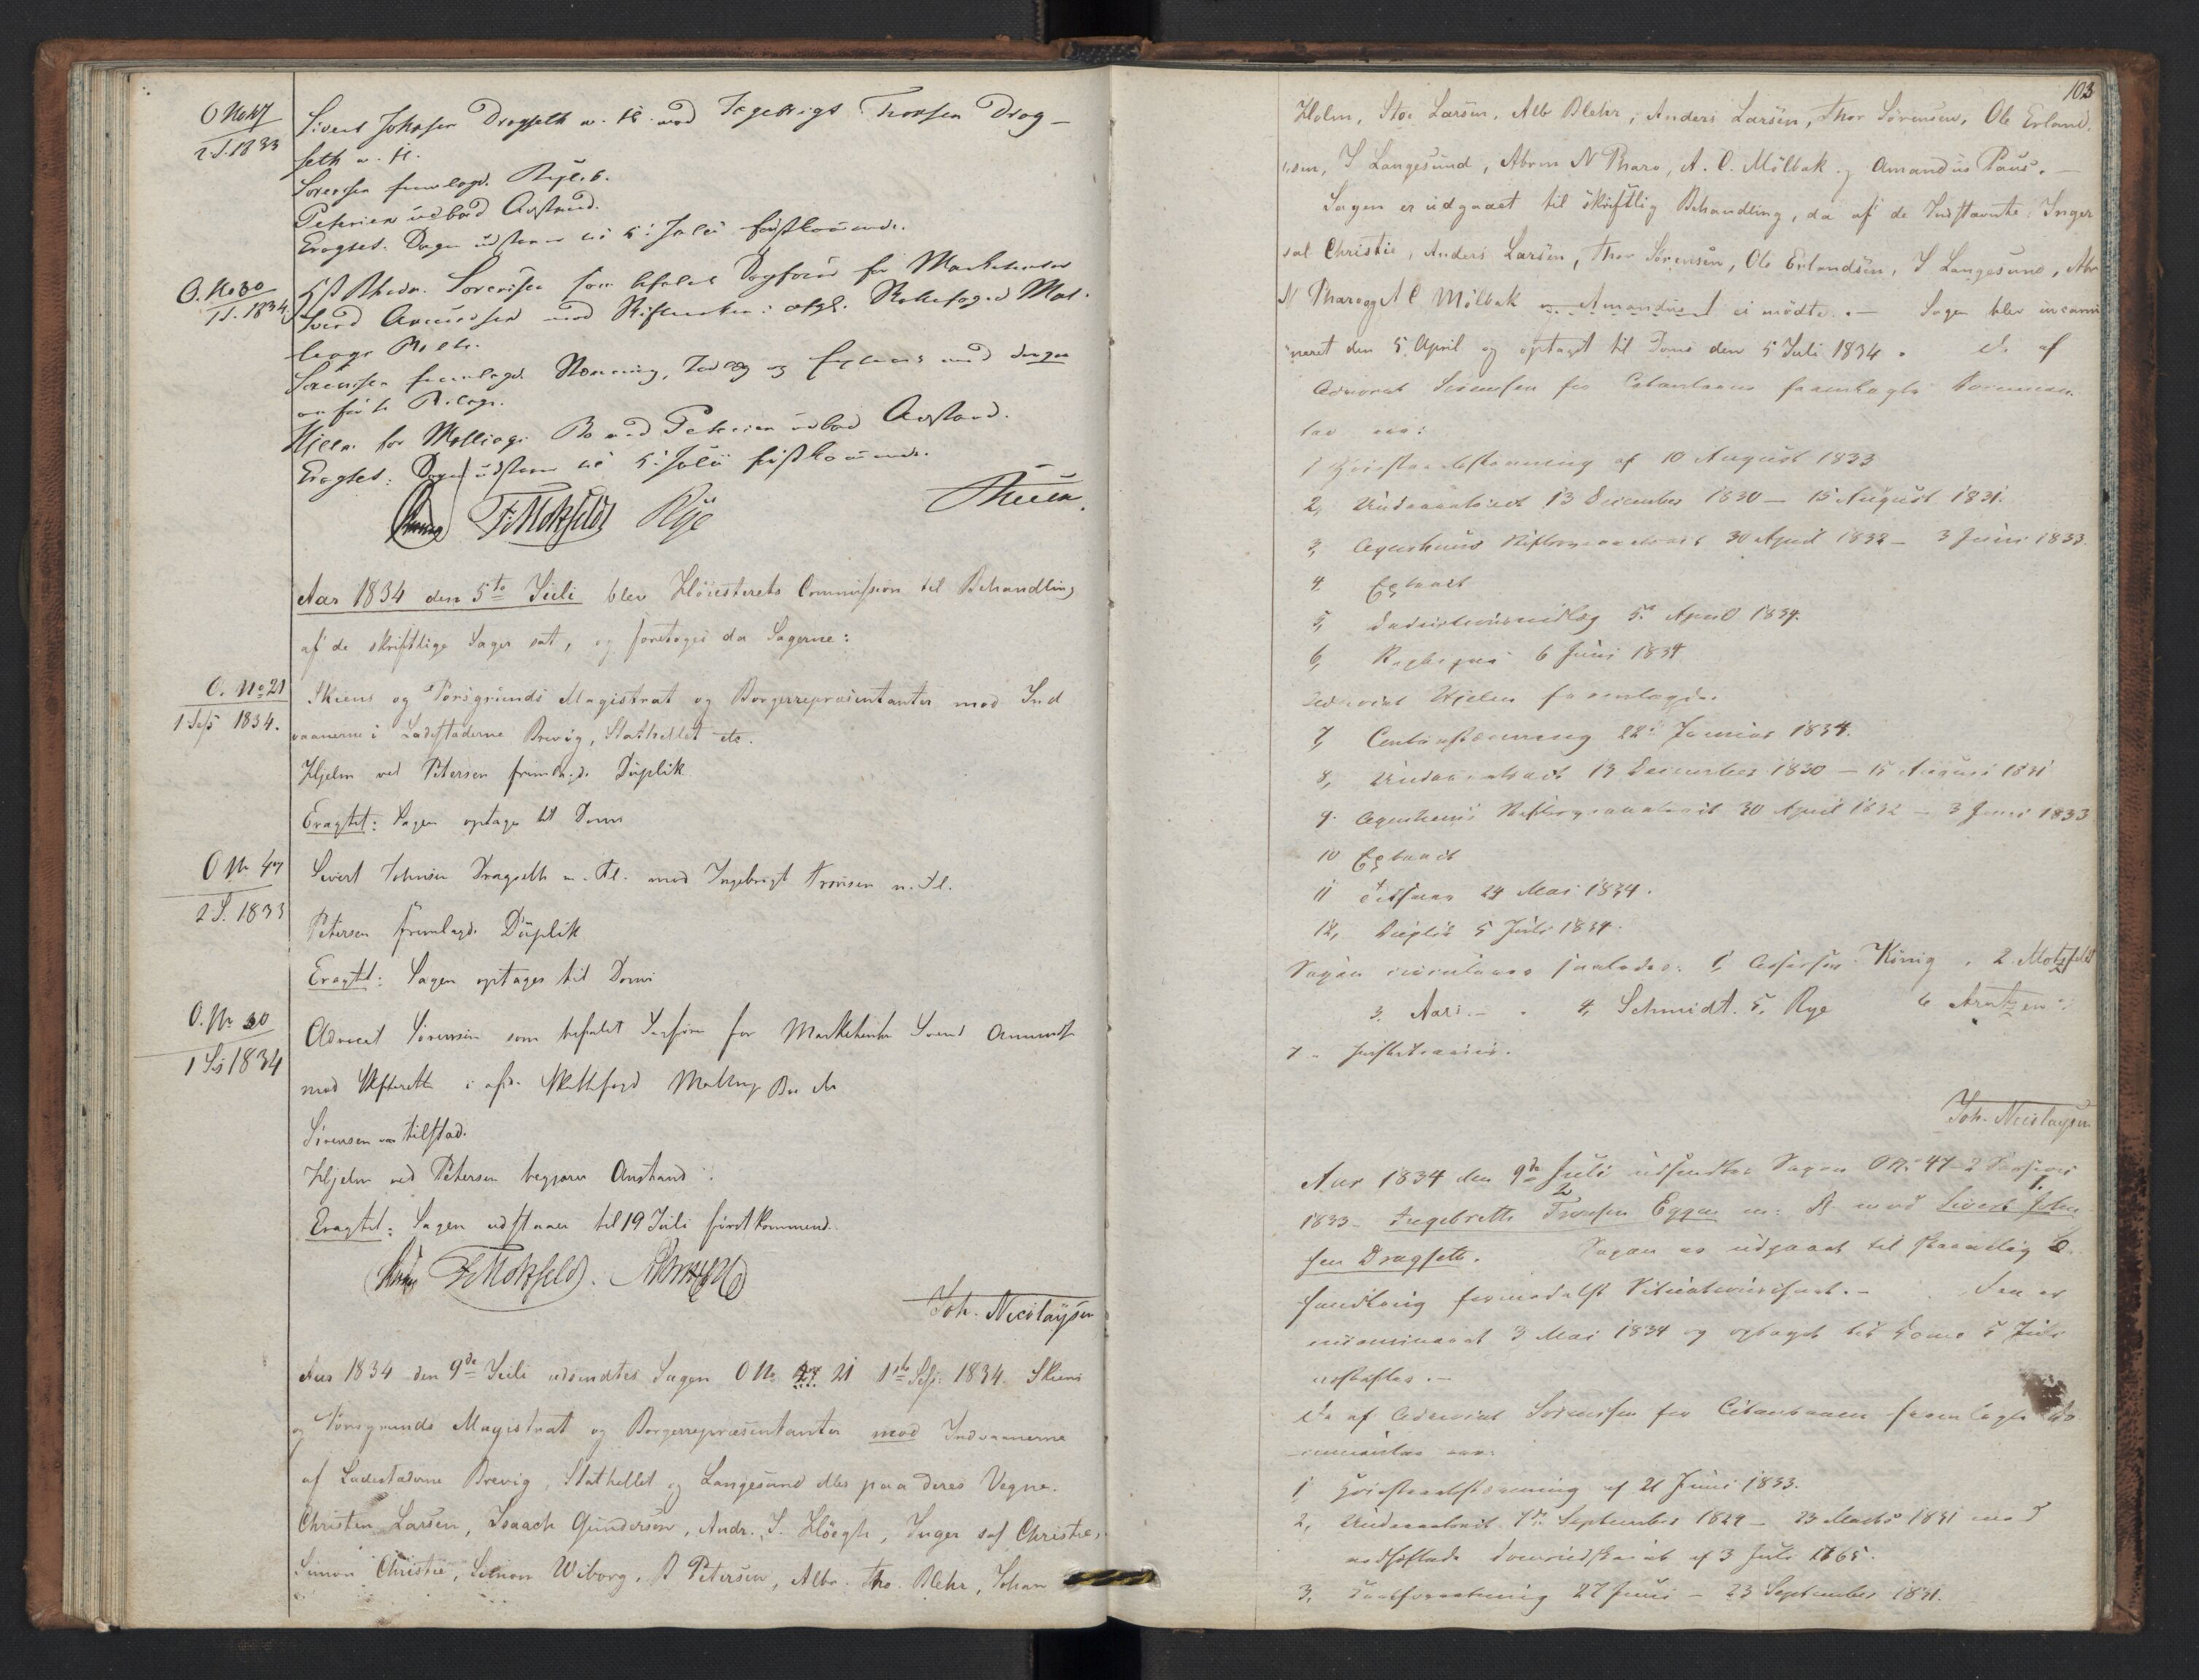 O No 47
2 S. 1833
Sivert Johnsen Dragseth m. Fl. mod Ingebrigt Tronsen Drag-
seth m. Fl.
Sørensen fremlagde Replik.
Petersen udbad Anstand.
Eragtet: Sagen udstaaer til 5te Julii førstkommende.
O. No 30
1 S. 1834
Advocat Sørensen som befalet Sagfører for Marketenter
Svend Amundsen mod Skifteretten i afg. Mal-
lings Boe etc.
Sørensen fremlagde Stævning, Indlæg og Extract med deri
anførte Bilage.
Hjelm for Mallings Bo ved Petersen udbad Anstand.
Eragtet: Sagen udstaaer til 5te Julii førstkommende.
F. Motzfeldt Rye
Aar 1834 den 5te Juli blev Höiesterets Commission til Behandling
af de skriftlige Sager sat, og foretoges da Sagerne:
O. No 21
1 Sess 1834.
Skiens og Porsgrunds Magistrat og Borgerrepræsentanter mod Ind
vaanerne i Ladestaderne Brevig, Stathellet etc.
Hjelm ved Petersen fremlagde Duplik
Eragtet: Sagen optages til Doms
O No 47
2 S. 1833
Sivert Johnsen Dragseth m. Fl. mod Ingebrigt Tronsen m. Fl.
Petersen fremlagde Duplik
Eragtet: Sagen optages til Doms
O. No 30
1 Ss 1834
Advocat Sörensen som befalet Sagförer for Marketenter Svend Amunds
mod Skifteretten i afg. Mallings Bo etc
Sörensen var tilstæd.
Hjelm ved Petersen begjærer Anstand
Eragtet: Sagen udstaaer til 19 Juli förstkommend.
F. Motzfeldt.
Joh. Nicolaysen
Aar 1834 den 9de Juli udsendtes Sagen O No 47 21 1ste Sess: 1834. Skiens
og Porsgrunds Magistrat og Borgerrepræsentanter mod Indvaanerne
af Ladestaderne Brevig, Stathellet og Langesund eller paa deres Vegne.
Christen Larsen, Isaach Gundersen, Andr. J. Höegh, Inger sal Christie,
Simon Christie, Simon Wiborg, P Petersen, Albr. Tho. Blehr, Johan
103
Holm, Stoe Larsen, Alb Blehr, Anders Larsen, Thor Sörensen, Ole Erland,
sen, J Langesund, Abrm N Bharo, A. C. Mölbak og Amandus Paus. —
Sagen er udgaaet til skriftlig Behandling, da af de Indstævnte: Inger
sal Christie, Anders Larsen, Thor Sörensen, Ole Erlandsen, J Langesund, Abr
N Bharo og A C Mölbak og Amandus ei mödte. — Sagen blev incami
neret den 5 April og optaget til Doms den 5 Juli 1834. De af
Advocat Sörensen for Citanterne fremlagte Documen-
ter ere:
1 Höiesteretsstævning af 10 August 1833
2, Underretsact 13 December 1830 — 15 August 1831.
3, Agershuus Stiftsoverretsact 30 April 1832 — 3 Juni 1833
4 Extract
5, Deductionsindlæg 5te April 1834.
6, Replik 6 Juni 1834
Advocat Hjelm fremlagde.
7, Contrastævning 22de Januar 1834.
8, Underretsact 13 December 1830 — 15 August 1831
9. Agershuus Stiftsoverretsact 30 April 1832 — 3 Juni 1833
10 Extract
11 Tilsvar 24 Mai 1834.
12, Duplik 5 Juli 1834.
Sagen circulerer saaledes: 1, Assessor König, 2. Motzfeldt
3. Aars. 4, Schmidt. 5, Rye 6 Arntzen
7 Justitiarius.
Joh. Nicolaysen
Aar 1834 den 9de Juli udsendtes Sagen O No 47 2 Session
1833 — Ingebrett Tronsen Eggen m: Fl. mod Sivert John
sen Dragseth. Sagen er udgaaet til skriftlig Be-
handling formedelst Situationschart. — Den er
incamineret 3 Mai 1834 og optaget til Doms 5 Juli
De af Advocat Sörensen for Citanterne fremlagte Do
cumenter ere:
1, Höiesteretsstævning af 21 Juni 1833.
2, Underretsact 7de September 1829 — 23 Marts 1831 med
vedhæftede af 3 Juli 1765.
3, 27 Juni — 23 September 1831.